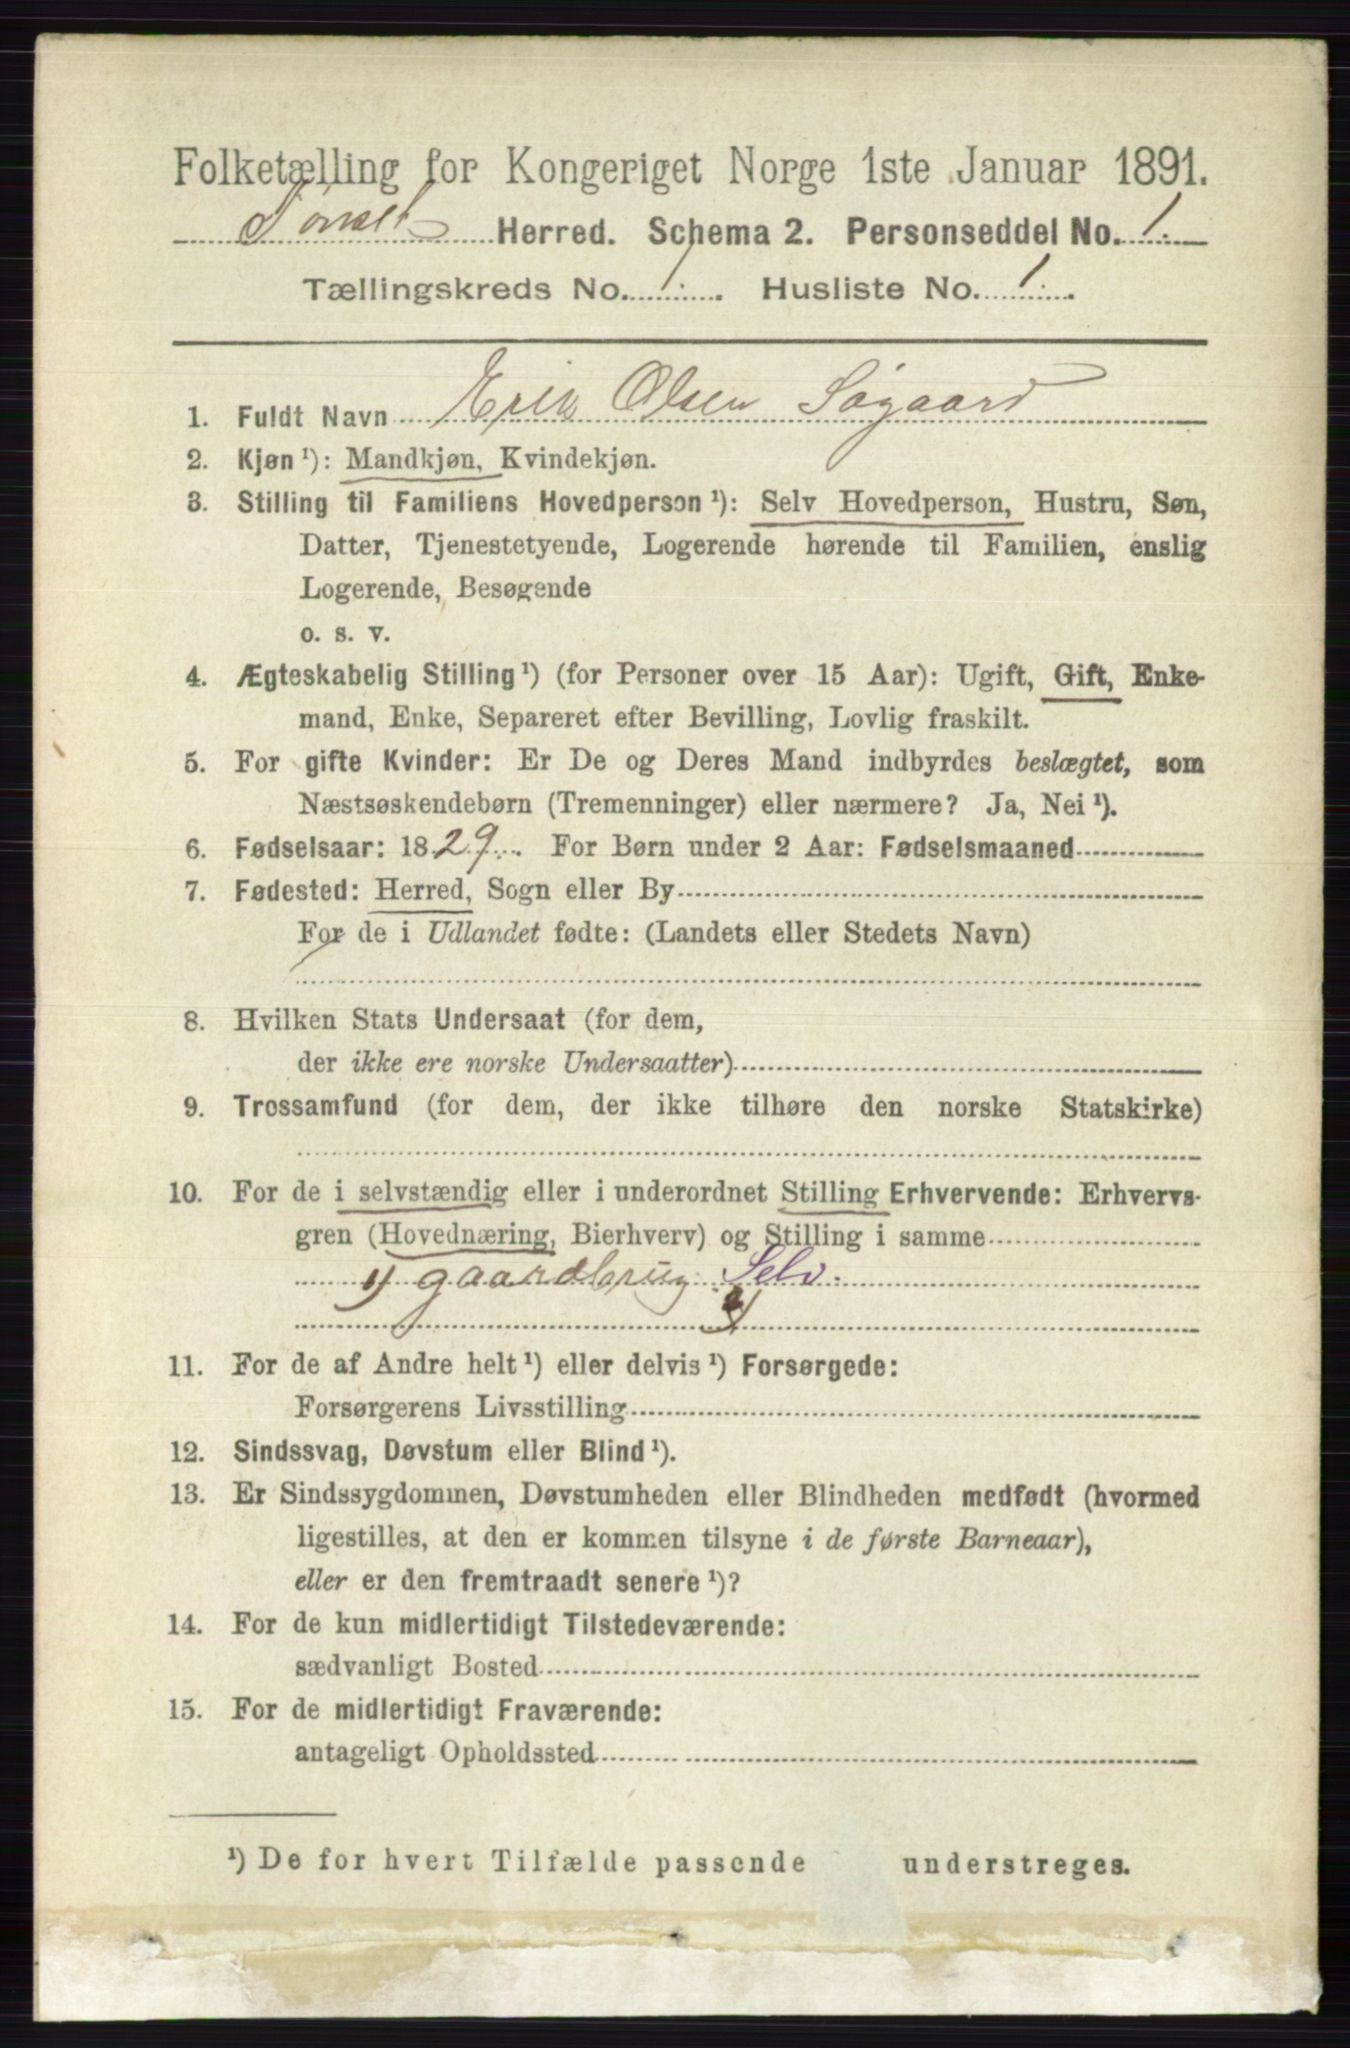 Folketælling for Kongeriget Norge 1ste Januar 1891.
Tønset Herred. Schema 2. Personseddel No. 1.
Tællingskreds No. 1. Husliste No. 1.
1. Fuldt Navn Erik Olsen Søgaard
2. Kjøn ¹): Mandkjøn, Kvindekjøn.
3. Stilling til Familiens Hovedperson ¹): Selv Hovedperson, Hustru, Søn,
Datter, Tjenestetyende, Logerende hørende til Familien, enslig
Logerende, Besøgende
o. s. v.
4. Ægteskabelig Stilling ¹) (for Personer over 15 Aar): Ugift, Gift, Enke-
mand, Enke, Separeret efter Bevilling, Lovlig fraskilt.
5. For gifte Kvinder: Er De og Deres Mand indbyrdes beslægtet, som
Næstsøskendebørn (Tremenninger) eller nærmere? Ja, Nei ¹).
6. Fødselsaar: 1829. For Børn under 2 Aar: Fødselsmaaned
7. Fødested: Herred, Sogn eller By
For de i Udlandet fødte: (Landets eller Stedets Navn)
8. Hvilken Stats Undersaat (for dem,
der ikke ere norske Undersaatter)
9. Trossamfund (for dem, der ikke tilhøre den norske Statskirke)
10. For de i selvstændig eller i underordnet Stilling Erhvervende: Erhvervs-
gren (Hovednæring, Bierhverv) og Stilling i samme
1) gaardbrug Selv.
11. For de af Andre helt ¹) eller delvis ¹) Forsørgede:
Forsørgerens Livsstilling
12. Sindssvag, Døvstum eller Blind ¹).
13. Er Sindssygdommen, Døvstumheden eller Blindheden medfødt (hvormed
ligestilles, at den er kommen tilsyne i de første Barneaar),
eller er den fremtraadt senere ¹)?
14. For de kun midlertidigt Tilstedeværende:
sædvanligt Bosted
15. For de midlertidigt Fraværende:
antageligt Opholdssted
¹) De for hvert Tilfælde passende understreges.